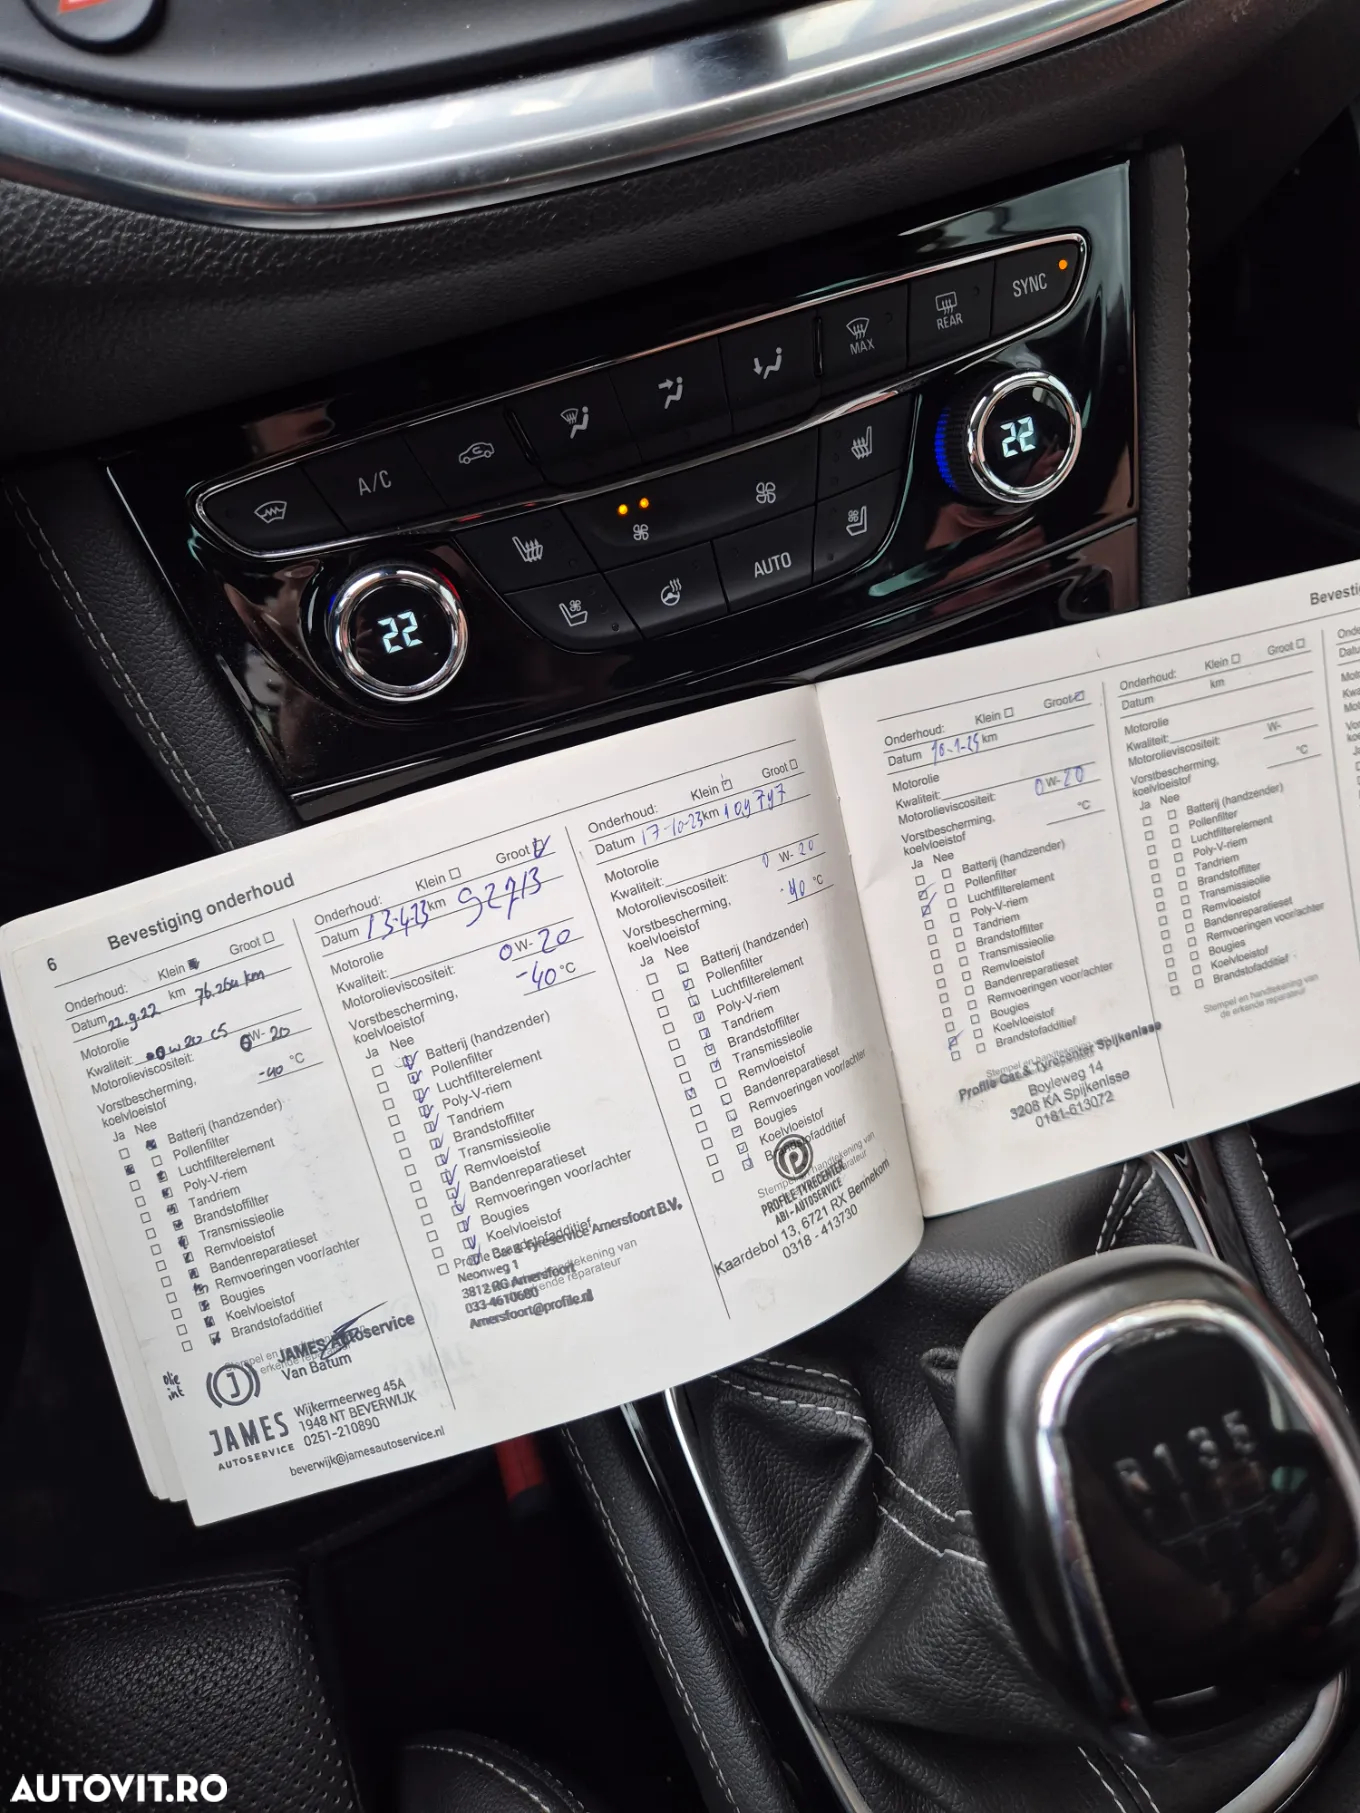 SYNC
REAR
MAX
A/C
22
AUTO
22
6
Bevestiging onderhoud
Onderhoud: Klein Groot
Datum 22.9.22 km 76.264 km
Motorolie
Kwaliteit: 0w20 C5
Motorolieviscositeit: 0 W- 20
Vorstbescherming,
koelvloeistof -40 °C
Ja Nee
Batterij (handzender)
Pollenfilter
Luchtfilterelement
Poly-V-riem
Tandriem
Brandstoffilter
Transmissieolie
Remvloeistof
Bandenreparatieset
Remvoeringen voor/achter
Bougies
Koelvloeistof
Brandstofadditief
Stempel en
erkende reparateur
JAMES Autoservice
Van Batum
JAMES
AUTOSERVICE
Wijkermeerweg 45A
1948 NT BEVERWIJK
0251-210890
beverwijk@jamesautoservice.nl
Onderhoud: Klein Groot
Datum 13-4-23 km 92713
Motorolie
Kwaliteit:
Motorolieviscositeit: 0 W- 20
Vorstbescherming,
koelvloeistof -40 °C
Ja Nee
Batterij (handzender)
Pollenfilter
Luchtfilterelement
Poly-V-riem
Tandriem
Brandstoffilter
Transmissieolie
Remvloeistof
Bandenreparatieset
Remvoeringen voor/achter
Bougies
Koelvloeistof
Brandstofadditief
Profile Car & Tyreservice Amersfoort B.V.
Neonweg 1
3812 RG Amersfoort
033-4610680
Amersfoort@profile.nl
Onderhoud: Klein Groot
Datum 17-10-23 km 109797
Motorolie
Kwaliteit:
Motorolieviscositeit: 0 W- 20
Vorstbescherming,
koelvloeistof -40 °C
Ja Nee
Batterij (handzender)
Pollenfilter
Luchtfilterelement
Poly-V-riem
Tandriem
Brandstoffilter
Transmissieolie
Remvloeistof
Bandenreparatieset
Remvoeringen voor/achter
Bougies
Koelvloeistof
Brandstofadditief
Stempel en handtekening van
PROFILE TYRECENTER
ABI - AUTOSERVICE
Kaardebol 13, 6721 RX Bennekom
0318 - 413730
Onderhoud: Klein Groot
Datum 10-1-25 km
Motorolie
Kwaliteit:
Motorolieviscositeit: 0 W- 20
Vorstbescherming,
koelvloeistof °C
Ja Nee
Batterij (handzender)
Pollenfilter
Luchtfilterelement
Poly-V-riem
Tandriem
Brandstoffilter
Transmissieolie
Remvloeistof
Bandenreparatieset
Remvoeringen voor/achter
Bougies
Koelvloeistof
Brandstofadditief
Profile Car & Tyrecenter Spijkenisse
Boyleweg 14
3208 KA Spijkenisse
0181-613072
Onderhoud: Klein Groot
Datum km
Motorolie
Kwaliteit:
Motorolieviscositeit: W-
Vorstbescherming,
koelvloeistof °C
Ja Nee
Batterij (handzender)
Pollenfilter
Luchtfilterelement
Poly-V-riem
Tandriem
Brandstoffilter
Transmissieolie
Remvloeistof
Bandenreparatieset
Remvoeringen voor/achter
Bougies
Koelvloeistof
Brandstofadditief
Stempel en handtekening van
de erkende reparateur
R 1 3 5
AUTOVIT.RO